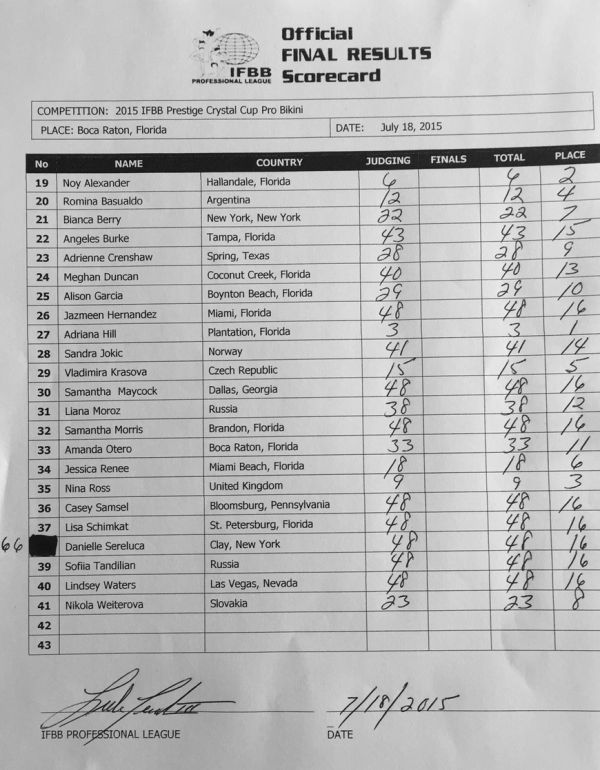 Official
FINAL RESULTS
Scorecard
IFBB
PROFESSIONAL LEAGUE
COMPETITION: 2015 IFBB Prestige Crystal Cup Pro Bikini
PLACE: Boca Raton, Florida DATE: July 18, 2015
No NAME COUNTRY JUDGING FINALS TOTAL PLACE
19 Noy Alexander Hallandale, Florida 6 6 2
20 Romina Basualdo Argentina 12 12 4
21 Bianca Berry New York, New York 22 22 7
22 Angeles Burke Tampa, Florida 43 43 15
23 Adrienne Crenshaw Spring, Texas 28 28 9
24 Meghan Duncan Coconut Creek, Florida 40 40 13
25 Alison Garcia Boynton Beach, Florida 29 29 10
26 Jazmeen Hernandez Miami, Florida 48 48 16
27 Adriana Hill Plantation, Florida 3 3 1
28 Sandra Jokic Norway 41 41 14
29 Vladimira Krasova Czech Republic 15 15 5
30 Samantha Maycock Dallas, Georgia 48 48 16
31 Liana Moroz Russia 38 38 12
32 Samantha Morris Brandon, Florida 48 48 16
33 Amanda Otero Boca Raton, Florida 33 33 11
34 Jessica Renee Miami Beach, Florida 18 18 6
35 Nina Ross United Kingdom 9 9 3
36 Casey Samsel Bloomsburg, Pennsylvania 48 48 16
37 Lisa Schimkat St. Petersburg, Florida 48 48 16
66 Danielle Sereluca Clay, New York 48 48 16
39 Sofiia Tandilian Russia 48 48 16
40 Lindsey Waters Las Vegas, Nevada 48 48 16
41 Nikola Weiterova Slovakia 23 23 8
42
43
7/18/2015
IFBB PROFESSIONAL LEAGUE DATE